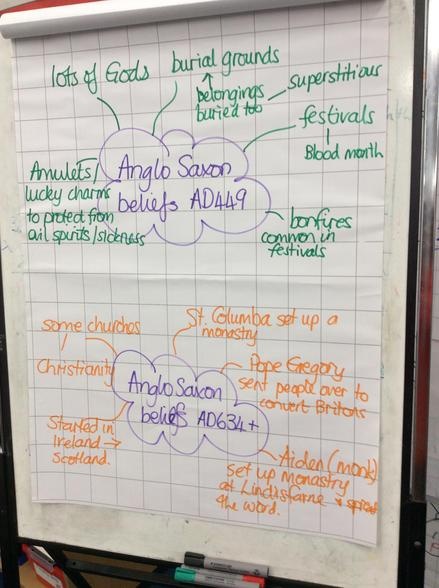 lots of Gods
burial grounds
belongings
buried too
superstitious
festivals
Blood month
Amulets/
lucky charms
to protect from
evil spirits/sickness
Anglo Saxon
beliefs AD449
bonfires
common in
festivals
some churches
Christianity
Started in
Ireland →
Scotland.
St. Columba set up a
monastry
Anglo Saxon
beliefs AD634+
Pope Gregory
sent people over to
convert Britons
Aiden (monk)
set up Monastry
at Lindisfarne + spread
the word.